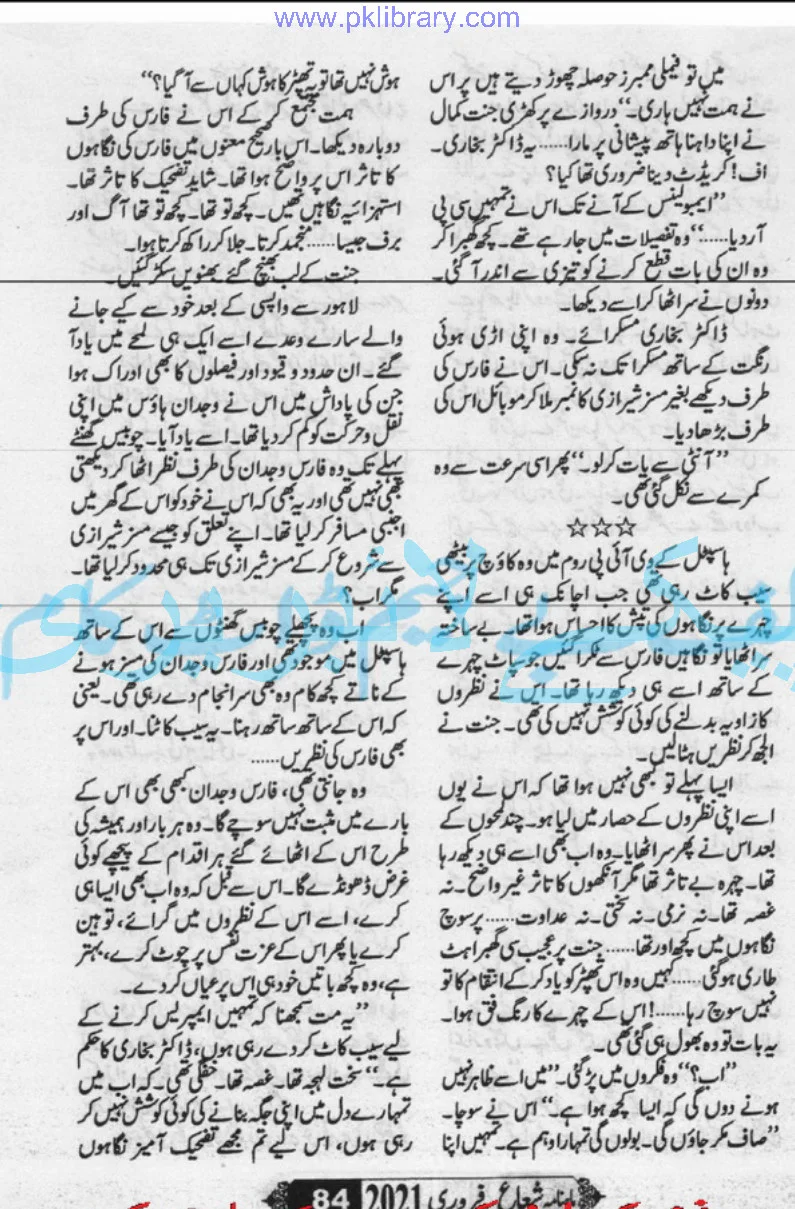 www.pklibrary.com
میں تو فیملی ممبرز حوصلہ چھوڑ دیتے ہیں پر اس
نے ہمت نہیں ہاری۔‘‘ دروازے پر کھڑی جنت کمال
نے اپنا داہنا ہاتھ پیشانی پر مارا...... یہ ڈاکٹر بخاری۔
اف! کریڈٹ دینا ضروری تھا کیا؟
’’ایمبولینس کے آنے تک اس نے تمہیں سی پی
آر دیا......‘‘ وہ تفصیلات میں جا رہے تھے۔ کچھ گھبرا کر
وہ ان کی بات قطع کرنے کو تیزی سے اندر آ گئی۔
دونوں نے سر اٹھا کر اسے دیکھا۔
ڈاکٹر بخاری مسکرائے۔ وہ اپنی اڑی ہوئی
رنگت کے ساتھ مسکرا تک نہ سکی۔ اس نے فارس کی
طرف دیکھے بغیر مسز شیرازی کا نمبر ملا کر موبائل اس کی
طرف بڑھا دیا۔
’’آنٹی سے بات کر لو۔‘‘ پھر اسی سرعت سے وہ
کمرے سے نکل گئی تھی۔
☆☆☆
ہاسپٹل کے وی آئی پی روم میں وہ کاؤچ پر بیٹھی
سیب کاٹ رہی تھی جب اچانک ہی اسے اپنے
چہرے پر نگاہوں کی تپش کا احساس ہوا تھا۔ بے ساختہ
سر اٹھایا تو نگاہیں فارس سے ٹکرا گئیں جو سپاٹ چہرے
کے ساتھ اسے ہی دیکھ رہا تھا۔ اس نے نظروں
کا زاویہ بدلنے کی کوئی کوشش نہیں کی تھی۔ جنت نے
الجھ کر نظریں ہٹا لیں۔
ایسا پہلے تو کبھی نہیں ہوا تھا کہ اس نے یوں
اسے اپنی نظروں کے حصار میں لیا ہو۔ چند لمحوں کے
بعد اس نے پھر سر اٹھایا۔ وہ اب بھی اسے ہی دیکھ رہا
تھا۔ چہرہ بے تاثر تھا مگر آنکھوں کا تاثر غیر واضح۔ نہ
غصہ تھا۔ نہ نرمی۔ نہ سختی۔ نہ عداوت...... پر سوچ
نگاہوں میں کچھ اور تھا...... جنت پر عجیب سی گھبراہٹ
طاری ہو گئی...... کہیں وہ اس تھپڑ کو یاد کر کے انتقام کا تو
نہیں سوچ رہا......! اس کے چہرے کا رنگ فق ہوا۔
یہ بات تو وہ بھول ہی گئی تھی۔
’’اب؟‘‘ وہ فکروں میں پڑ گئی۔ ’’میں اسے ظاہر نہیں
ہونے دوں گی کہ ایسا کچھ ہوا ہے۔‘‘ اس نے سوچا۔
’’صاف مکر جاؤں گی۔ بولوں گی تمہارا وہم ہے۔ تمہیں اپنا
ہوش نہیں تھا تو یہ تھپڑ کا ہوش کہاں سے آ گیا؟‘‘
ہمت مجتمع کر کے اس نے فارس کی طرف
دوبارہ دیکھا۔ اس بار صحیح معنوں میں فارس کی نگاہوں
کا تاثر اس پر واضح ہوا تھا۔ شاید تضحیک کا تاثر تھا۔
استہزائیہ نگاہیں تھیں۔ کچھ تو تھا۔ کچھ تو تھا آگ اور
برف جیسا...... منجمد کرتا۔ جلا کر راکھ کرتا ہوا۔
جنت کے لب بھنچ گئے بھنویں سکڑ گئیں۔
لاہور سے واپسی کے بعد خود سے کیے جانے
والے سارے وعدے اسے ایک ہی لمحے میں یاد آ
گئے۔ ان حدود و قیود اور فیصلوں کا بھی ادراک ہوا
جن کی پاداش میں اس نے وجدان ہاؤس میں اپنی
نقل و حرکت کو کم کر دیا تھا۔ اسے یاد آیا۔ چوبیس گھنٹے
پہلے تک وہ فارس وجدان کی طرف نظر اٹھا کر دیکھتی
بھی نہیں تھی اور یہ بھی کہ اس نے خود کو اس کے گھر میں
اجنبی مسافر کر لیا تھا۔ اپنے تعلق کو جیسے مسز شیرازی
سے شروع کر کے مسز شیرازی تک ہی محدود کر لیا تھا۔
مگر اب؟
اب وہ پچھلے چوبیس گھنٹوں سے اس کے ساتھ
ہاسپٹل میں موجود تھی اور فارس وجدان کی مسز ہونے
کے ناتے کچھ کام وہ بھی سرانجام دے رہی تھی۔ یعنی
کہ اس کے ساتھ ساتھ رہنا۔ یہ سیب کاٹنا۔ اور اس پر
بھی فارس کی نظریں......
وہ جانتی تھی، فارس وجدان کبھی بھی اس کے
بارے میں مثبت نہیں سوچے گا۔ وہ ہر بار اور ہمیشہ کی
طرح اس کے اٹھائے گئے ہر اقدام کے پیچھے کوئی
غرض ڈھونڈے گا۔ اس سے قبل کہ وہ اب بھی ایسا ہی
کرے، اسے اس کے نظروں میں گرائے، توہین
کرے یا پھر اس کے عزت نفس پر چوٹ کرے، بہتر
ہے، وہ کچھ باتیں خود ہی اس پر عیاں کر دے۔
’’یہ مت سمجھنا کہ تمہیں ایمپریس کرنے کے
لیے سیب کاٹ کر دے رہی ہوں، ڈاکٹر بخاری کا حکم
ہے۔‘‘ سخت لہجہ تھا۔ غصہ تھا۔ خفگی تھی۔ کہ اب میں
تمہارے دل میں اپنی جگہ بنانے کی کوئی کوشش نہیں کر
رہی ہوں، اس لیے تم مجھے تضحیک آمیز نگاہوں
ماہنامہ شعاع فروری 2021 84